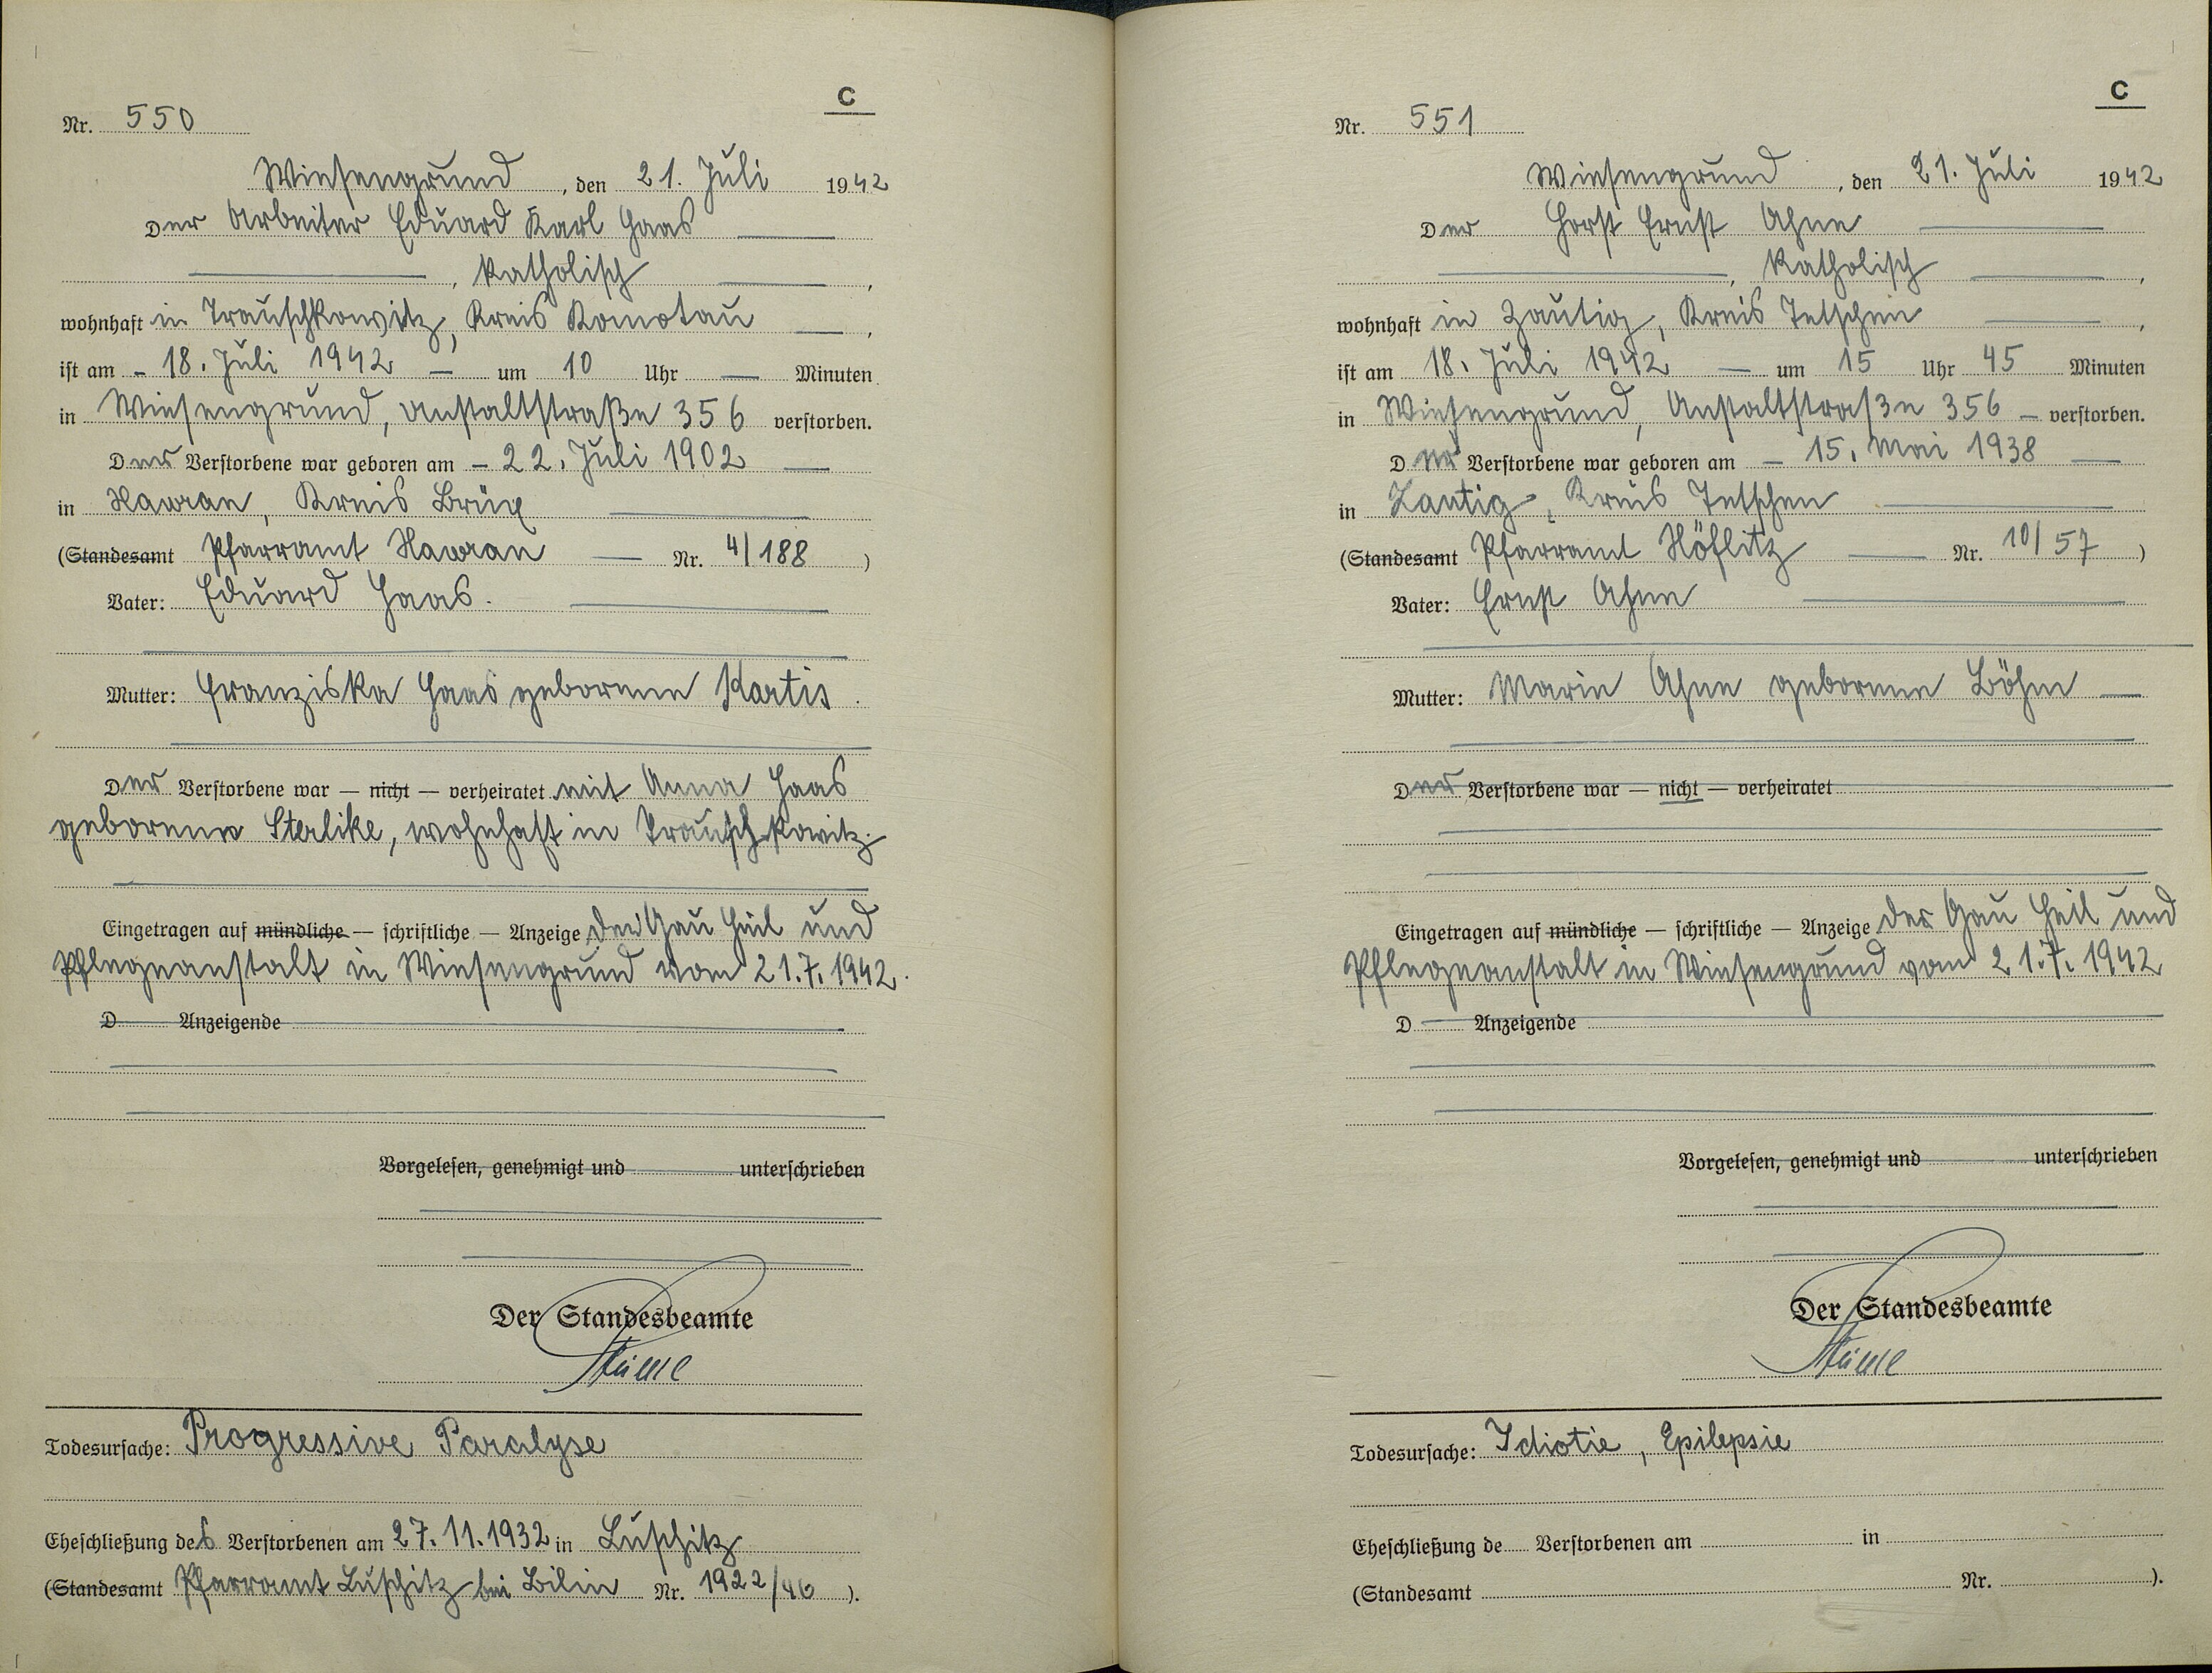 C
Nr. 550
Wiesengrund, den 21. Juli 1942
Der Arbeiter Eduard Karl Haas
, katholisch,
wohnhaft in Trauschkowitz, Kreis Komotau,
ist am - 18. Juli 1942 — um 10 Uhr — Minuten
in Wiesengrund, Anstaltstraße 356 verstorben.
Der Verstorbene war geboren am - 22. Juli 1902 —
in Hawran, Kreis Brüx
(Standesamt Pfarramt Hawran — Nr. 4/188)
Vater: Eduard Haas.
Mutter: Franziska Haas geborene Kartis.
Der Verstorbene war — nicht — verheiratet mit Anna Haas
geborene Sterlike, wohnhaft in Trauschkowitz.
Eingetragen auf mündliche — schriftliche — Anzeige der Gau Heil und
Pflegeanstalt in Wiesengrund vom 21.7.1942.
D Anzeigende
Vorgelesen, genehmigt und unterschrieben
Der Standesbeamte
Todesursache: Progressive Paralyse
Eheschließung des Verstorbenen am 27.11.1932 in Luschitz
(Standesamt Pfarramt Luschitz bei Bilin Nr. 1922/46).
C
Nr. 551
Wiesengrund, den 21. Juli 1942
Der Horst Ernst Ahne
, katholisch,
wohnhaft in Zautig, Kreis Tetschen,
ist am 18. Juli 1942 — um 15 Uhr 45 Minuten
in Wiesengrund, Anstaltstraße 356 - verstorben.
Der Verstorbene war geboren am - 15. Mai 1938 —
in Zautig, Kreis Tetschen
(Standesamt Pfarramt Höflitz — Nr. 10/57)
Vater: Ernst Ahne
Mutter: Marie Ahne geborene Böhm —
Der Verstorbene war — nicht — verheiratet
Eingetragen auf mündliche — schriftliche — Anzeige der Gau Heil und
Pflegeanstalt in Wiesengrund vom 21.7.1942
D Anzeigende
Vorgelesen, genehmigt und unterschrieben
Der Standesbeamte
Todesursache: Idiotie, Epilepsie
Eheschließung de Verstorbenen am in
(Standesamt Nr. ).